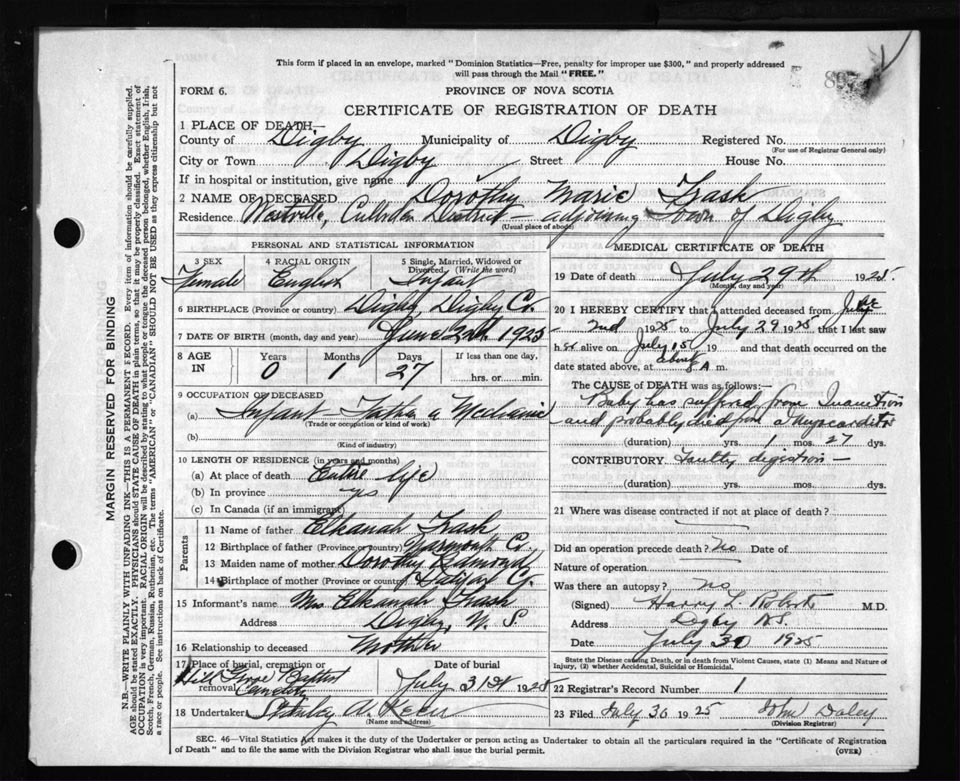 This form if placed in an envelope, marked "Dominion Statistics—Free, penalty for improper use $300," and properly addressed
will pass through the Mail "FREE."
FORM 6.
PROVINCE OF NOVA SCOTIA
CERTIFICATE OF REGISTRATION OF DEATH
1 PLACE OF DEATH—
County of Digby Municipality of Digby Registered No.
(For use of Registrar General only)
City or Town Digby Street House No.
If in hospital or institution, give name
2 NAME OF DECEASED Dorothy Marie Trask
Residence District — adjoining Town of Digby
(Usual place of abode)
PERSONAL AND STATISTICAL INFORMATION
3 SEX Female
4 RACIAL ORIGIN English
5 Single, Married, Widowed or Divorced (Write the word) Infant
6 BIRTHPLACE (Province or country) Digby, Digby Co.
7 DATE OF BIRTH (month, day and year) June 2nd 1925
8 AGE IN Years 0 Months 1 Days 27 If less than one day. hrs. or min.
9 OCCUPATION OF DECEASED
(a) Infant — Father a Mechanic
(Trade or occupation or kind of work)
(b)
(Kind of industry)
10 LENGTH OF RESIDENCE (in years and months)
(a) At place of death Entire life
(b) In province yes
(c) In Canada (if an immigrant)
Parents
11 Name of father Elkanah Trask
12 Birthplace of father (Province or country) Yarmouth Co.
13 Maiden name of mother Dorothy Edmonds
14 Birthplace of mother (Province or country) Halifax Co.
15 Informant's name Mrs Elkanah Trask
Address Digby, N. S.
16 Relationship to deceased Mother
17 Place of burial, cremation or removal Hill Grove Baptist Cemetery
Date of burial July 31st 1925
18 Undertaker Stanley
(Name and address)
MEDICAL CERTIFICATE OF DEATH
19 Date of death July 29th 1925
(Month, day and year)
20 I HEREBY CERTIFY that I attended deceased from June
2nd 1925 to July 29 1925 that I last saw
h er alive on July 15 19 and that death occurred on
date stated above, at about A m.
The CAUSE of DEATH was as follows:—
Baby has suffered from Inanition
and probably died from a Myocarditis
(duration) yrs. 1 mos. 27 dys.
CONTRIBUTORY Faulty digestion —
(duration) yrs. mos. dys.
21 Where was disease contracted if not at place of death?
Did an operation precede death? No Date of
Nature of operation
Was there an autopsy? No
(Signed) Harry L. Roberts M.D.
Address Digby N.S.
Date July 30 1925
State the Disease causing Death, or in death from Violent Causes, state (1) Means and Nature of
Injury, (2) whether Accidental, Suicidal or Homicidal.
22 Registrar's Record Number 1
23 Filed July 30 1925 John Daley
(Division Registrar)
SEC. 46—Vital Statistics Act makes it the duty of the Undertaker or person acting as Undertaker to obtain all the particulars required in the "Certificate of Registration
of Death" and to file the same with the Division Registrar who shall issue the burial permit.
(OVER)
MARGIN RESERVED FOR BINDING
N.B.—WRITE PLAINLY WITH UNFADING INK—THIS IS A PERMANENT RECORD. Every item of information should be carefully supplied.
AGE should be stated EXACTLY. PHYSICIANS should STATE CAUSE OF DEATH in plain terms, so that it may be properly classified. Exact statement of
OCCUPATION is very important. RACIAL ORIGIN will be described by stating to what people or tongue the deceased person belonged, whether English, Irish,
Scotch, French, German, Russian, Ruthenian, etc. The terms "AMERICAN" or "CANADIAN" SHOULD NOT BE USED as they express citizenship but not
a race or people. See instructions on back of Certificate.